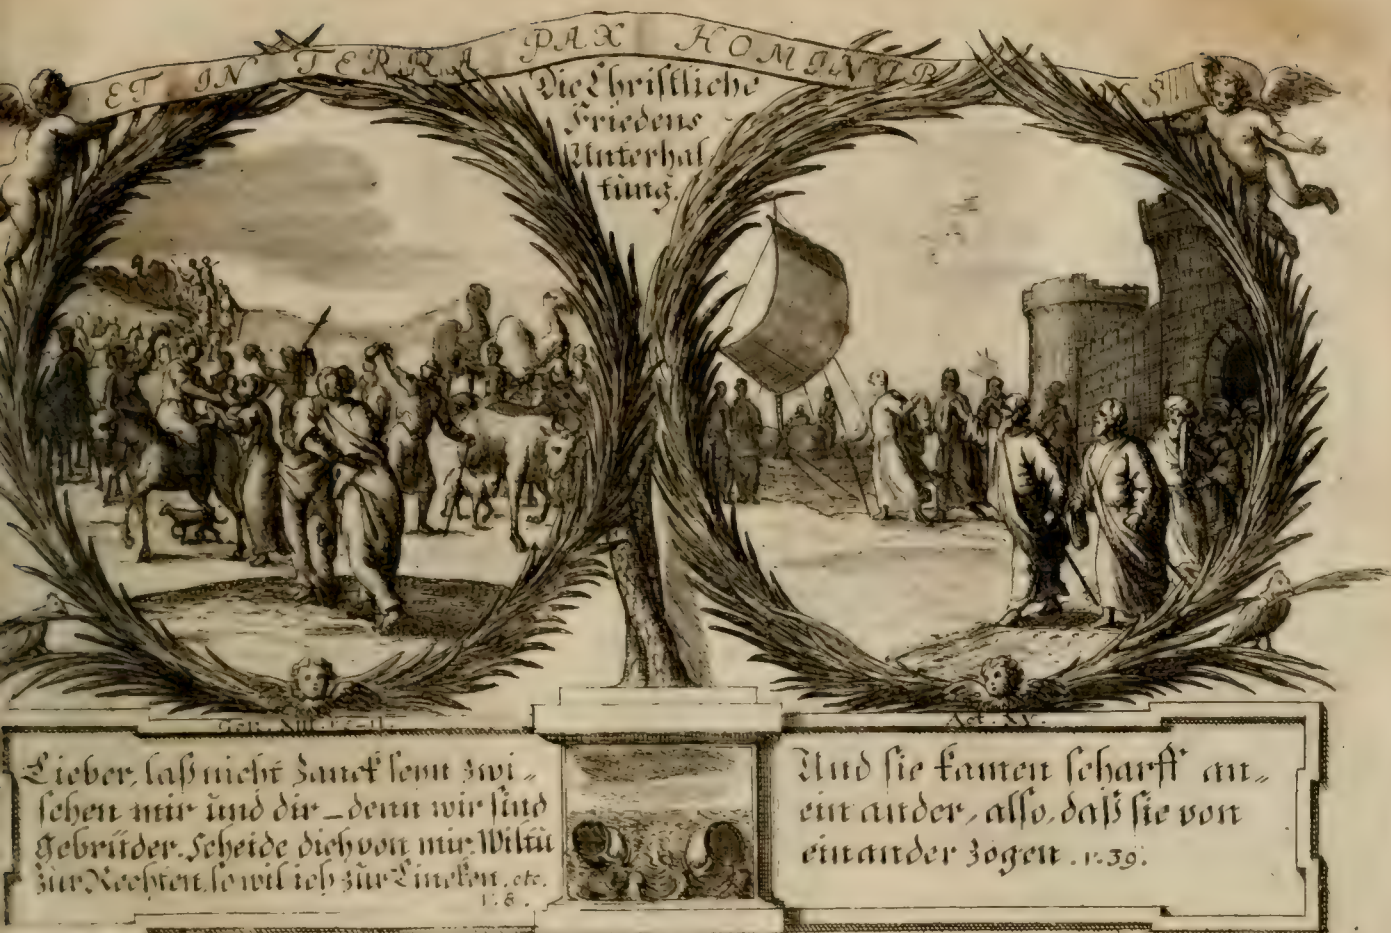 ET IN TERRA PAX HOMINIB US
Die Christliche
Friedens
Unterhal
tung.
Gen. XIII.
Lieber, laß nicht Zanck seyn zwi„
schen mir und dir – denn wir sind
Gebrüder. Scheide dich von mir. Wiltu
zur Rechten, so wil ich zur Lincken. etc.
v. 8.
Act. XV.
Und sie kamen scharff an„
ein ander, also, daß sie von
einander zogen. v. 39.